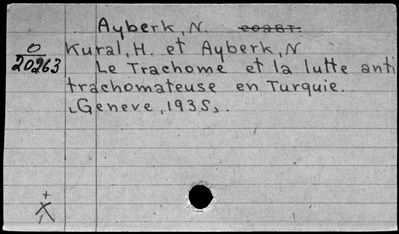 Ayberk, N. соавт.
O
20263
Kural, H. et Ayberk, N
Le Trachome et la lutte anti
trachomateuse en Turquie.
Geneve, 1935,.